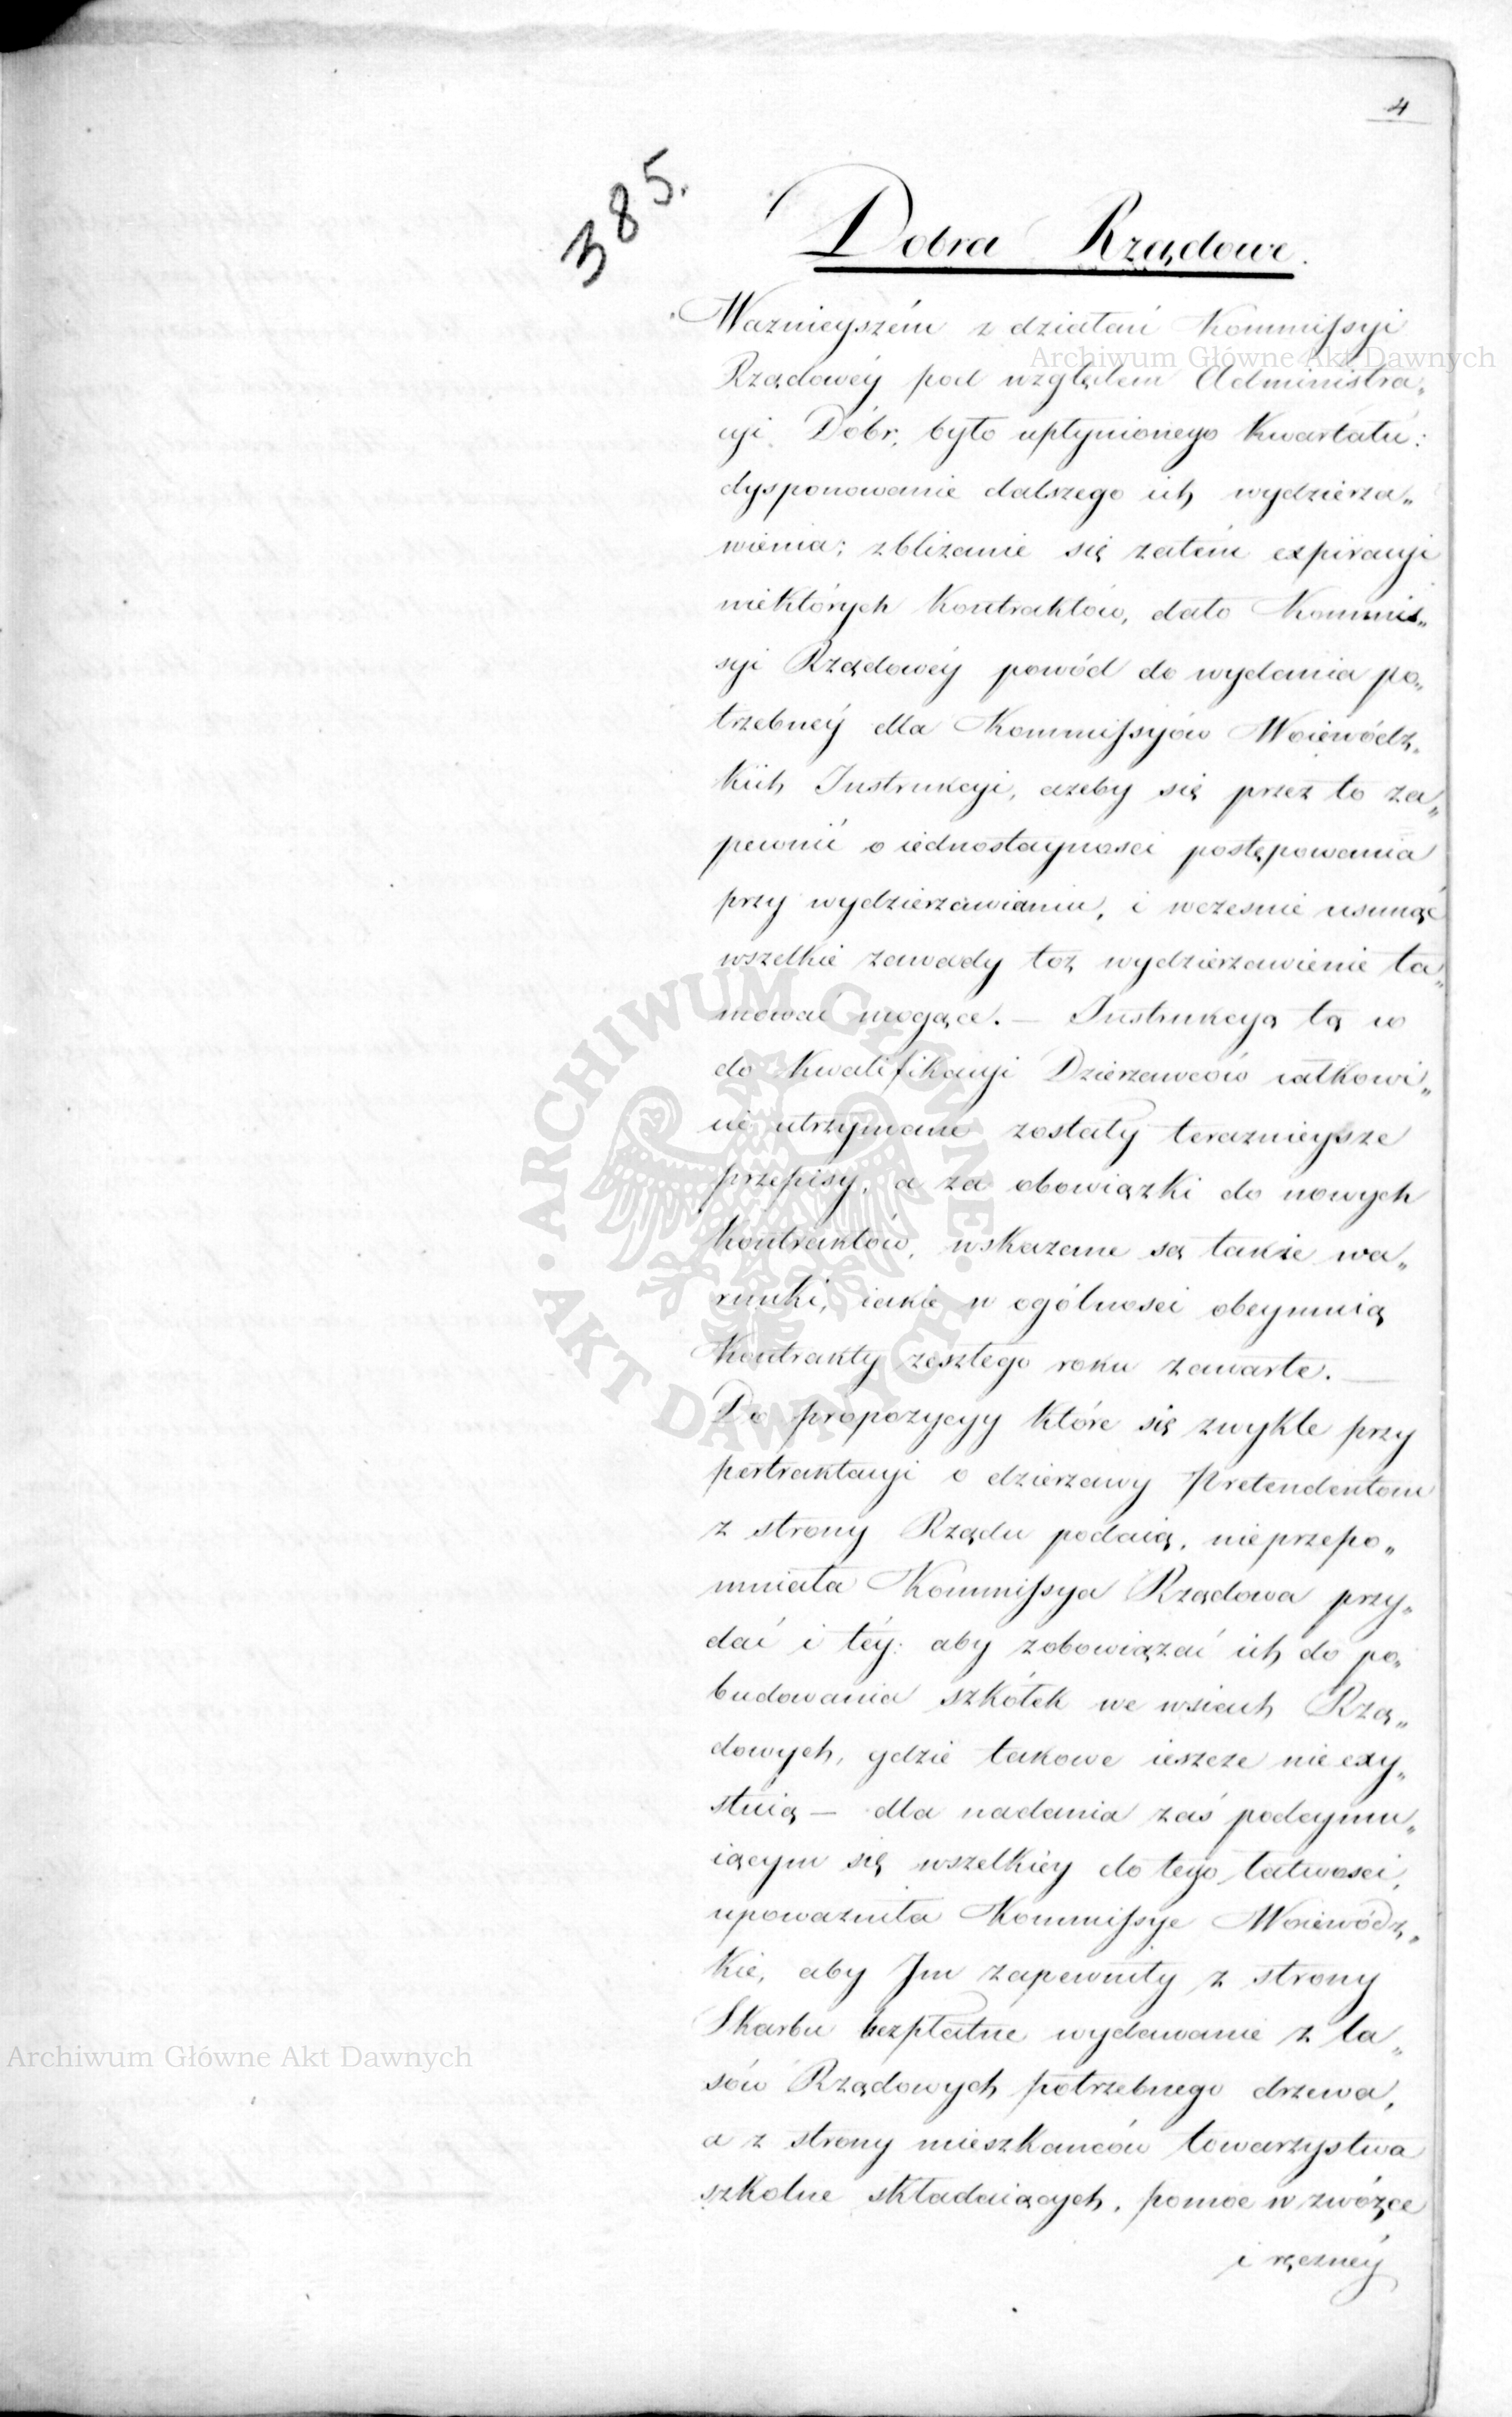 4
385.
Dobra Rządowe.
Ważnieyszém z działań Kommissyi
Archiwum Główne Akt Dawnych
Rządowéy pod względem Administra„
cyi Dóbr, było upłynionego Kwartału:
dysponowanie dalszego ich wydzierża„
wienia; zbliżanie się zatém expiracyi
niektórych Kontraktów, dało Kommis„
syi Rządowéy powód do wydania po„
trzebnéy dla Kommissyjów Woiewódz„
kich Instrukcyi, ażeby się przez to za„
pewnić o iednostayności postępowania
przy wydzierżawianiu, i wcześnie usunąć
wszelkie zawady toż wydzierżawienie ta„
mować mogące. — Instrukcyą tą co
do kwalifikacyi Dzierżawców całkowi„
cie utrzymane zostały teraznieysze
przepisy, a za obowiązki do nowych
Kontraktów, wskazane są także wa„
runki, iakie w ogólności obeymuią
Kontrakty zeszłego roku zawarte. —
Do propozycyy które się zwykle przy
pertraktacyi o dzierżawy Pretendentom
z strony Rządu podaią, nieprzepo„
mniała Kommissya Rządowa przy„
dać i téy: aby zobowiązać ich do po„
budowania szkółek we wsiach Rzą„
dowych, gdzie takowe ieszcze nie exy„
stuią — dla nadania zaś podeymu„
iącym się wszelkiéy do tego łatwości,
upoważniła Kommissye Woiewódz„
kie, aby Im zapewniły z strony
Skarbu bezpłatne wydawanie z la„
Archiwum Główne Akt Dawnych
sów Rządowych potrzebnego drzewa,
a z strony mieszkańców towarzystwa
szkolne składaiących, pomoc w zwózce
i ręcznéy
ARCHIWUM GŁÓWNE · AKT DAWNYCH ·